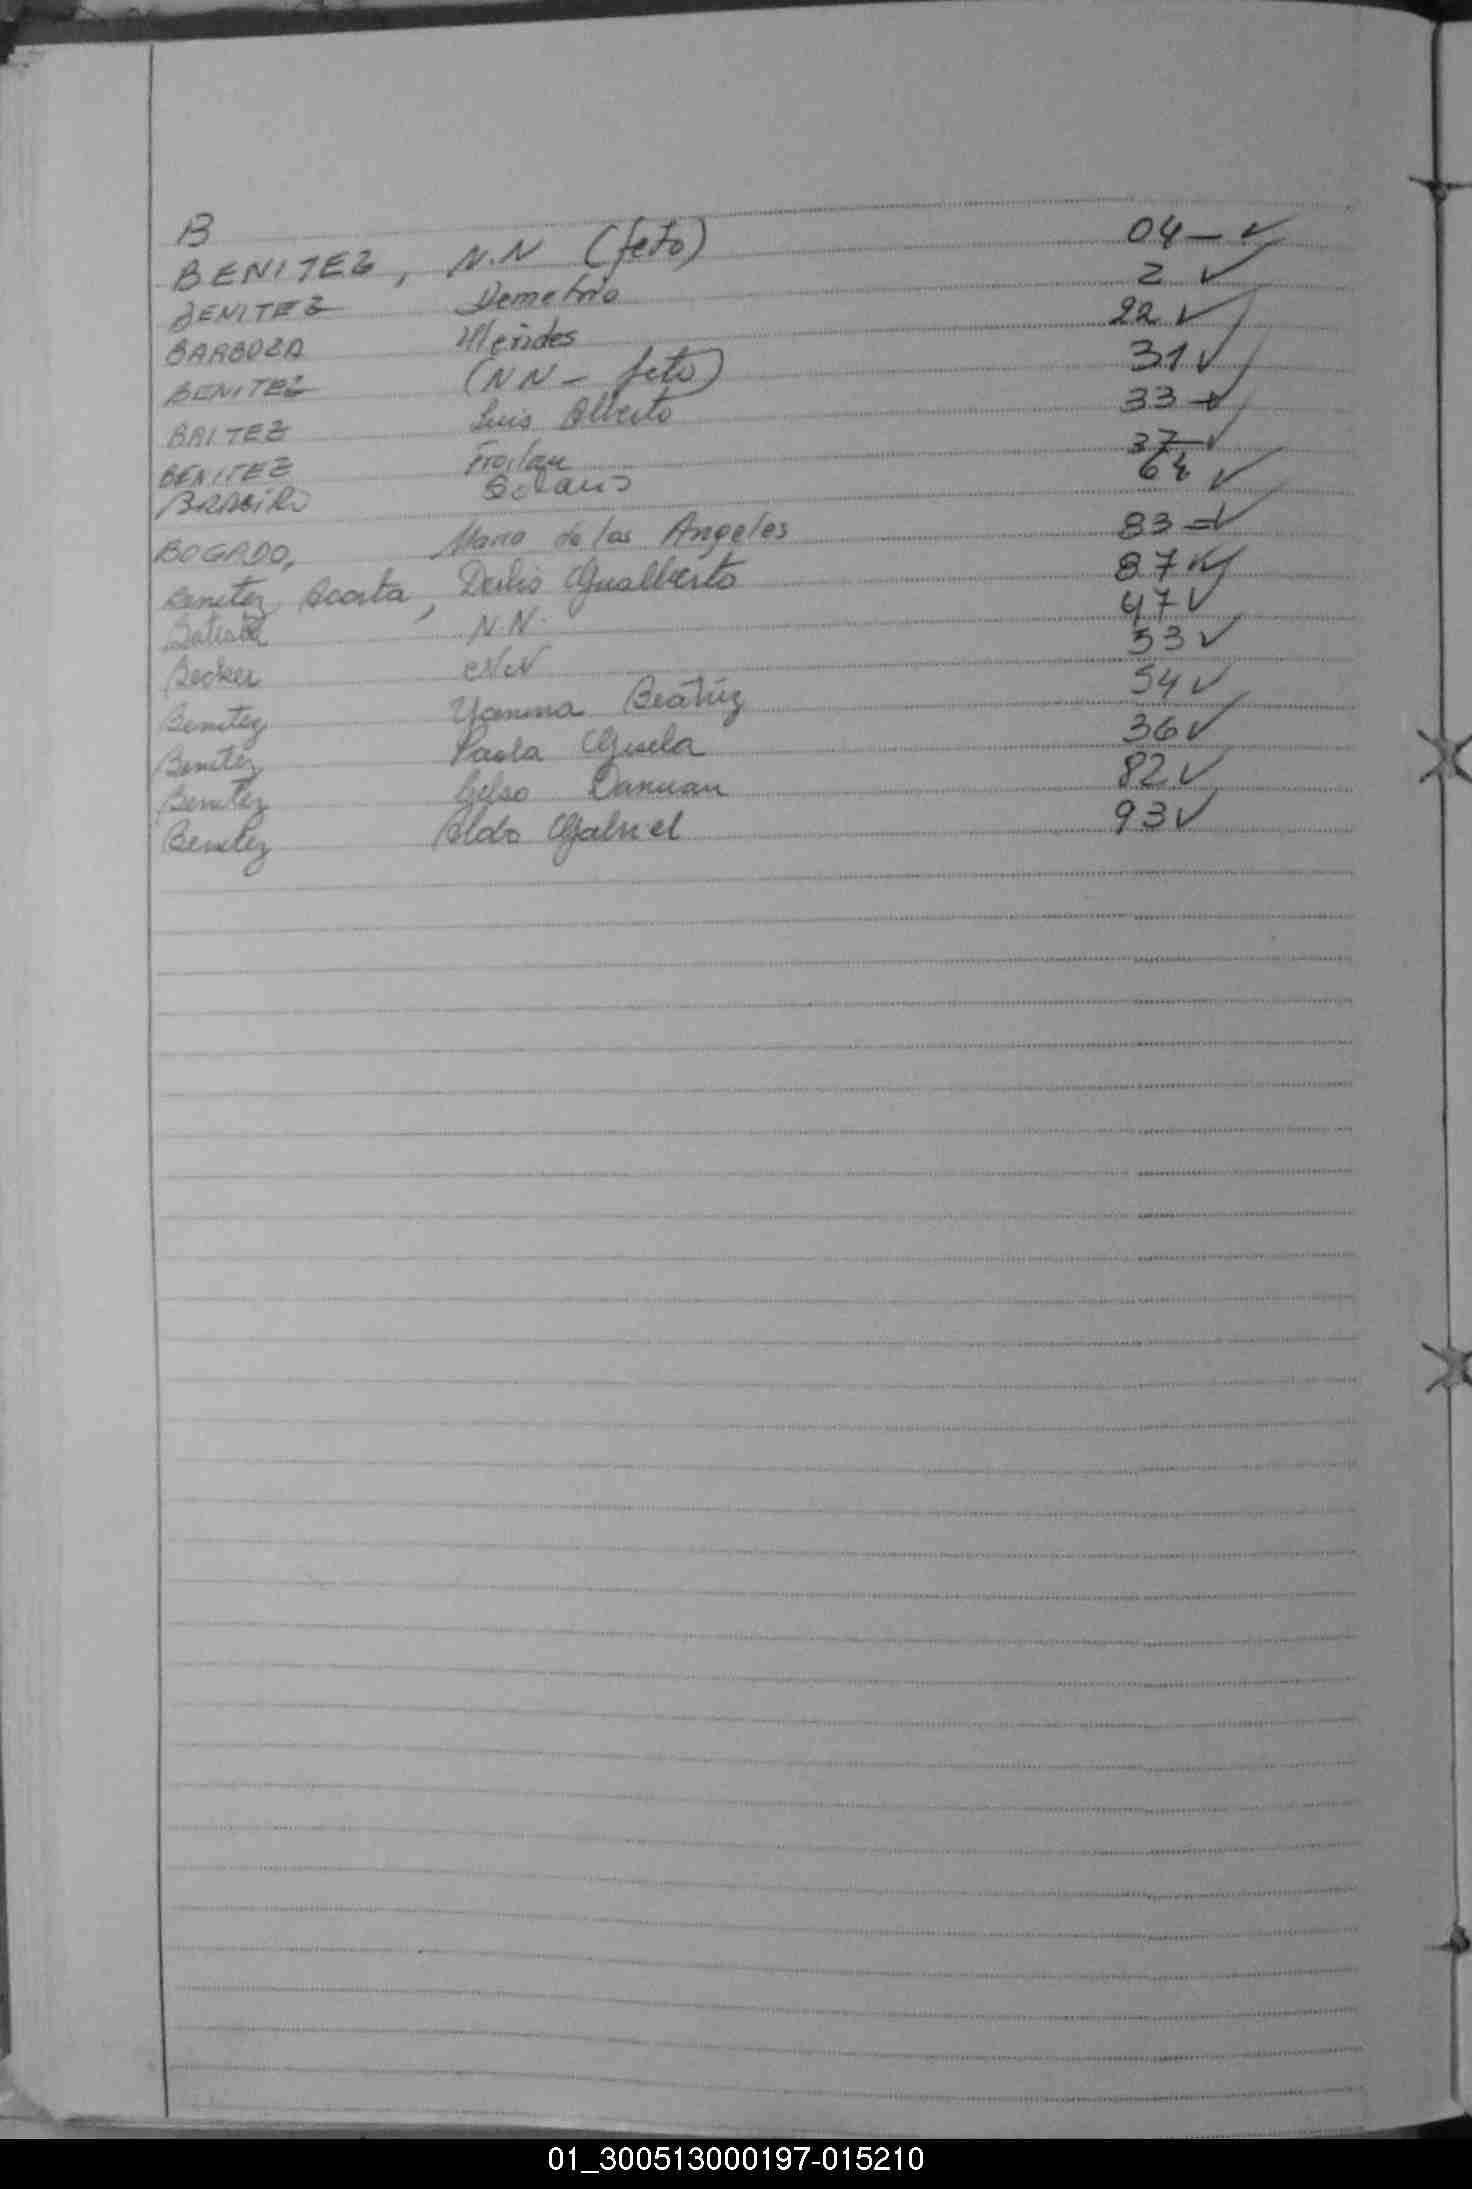 B
BENITEZ, N.N (feto) 04 - ✓
BENITEZ Demetrio 2 ✓
BARBOZA 22 ✓
BENITEZ (NN - feto) 31 ✓
BRITEZ Luis Alberto 33 ✓
BENITEZ Froilan 37 ✓
Solano 64 ✓
BOGADO, Maria de los Angeles 83 = ✓
Benitez Acosta, Derlis Gualberto 87 ✓
N.N. 47 ✓
Becker NN 53 ✓
Benitez Yanina Beatriz 54 ✓
Benitez Paola Gisela 36 ✓
Benitez Celso 82 ✓
Benitez Aldo Gabriel 93 ✓
01_300513000197-015210